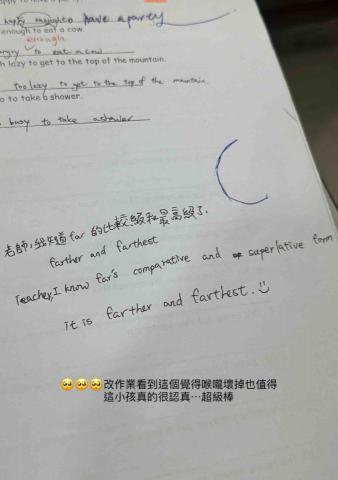 happy enough to have a party
enough to eat a cow.
enough
angry to eat a cow
h lazy to get to the top of the mountain.
too lazy to get to the top of the mountain.
o to take a shower.
busy to take a shower
老師,我知道far 的比較級和最高級了.
farther and farthest
Teacher, I know far's comparative and superlative form
it is farther and farthest.
🥺🥺🥺改作業看到這個覺得喉嚨壞掉也值得
這小孩真的很認真…超級棒